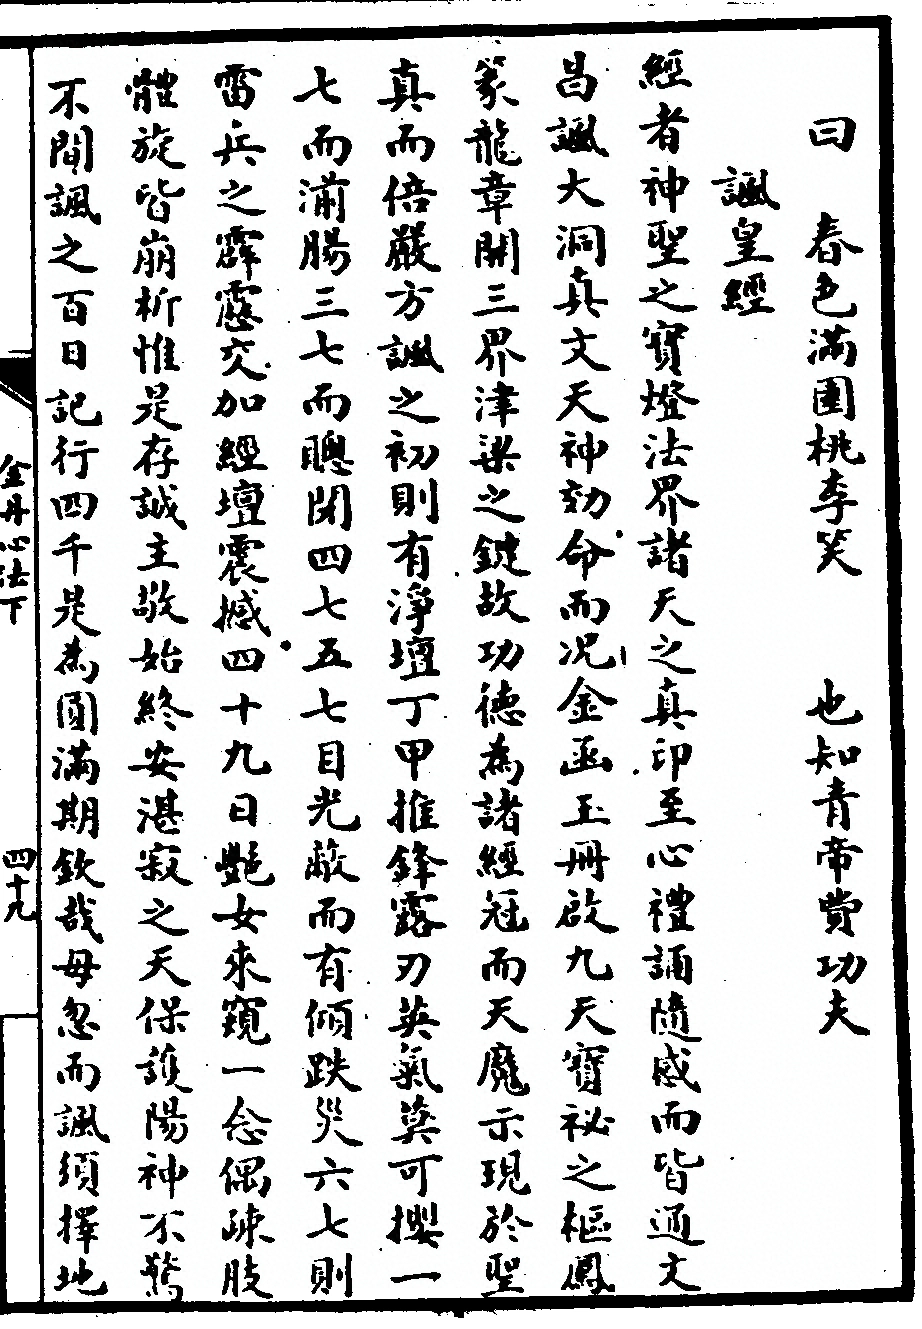 曰　春色滿園桃李笑　　也知青帝費功夫
諷皇經
經者神聖之寶燈法界諸天之真印至心禮誦隨感而皆通文
昌諷大洞真文天神効命而况金函玉冊啟九天寶祕之樞鳳
篆龍章開三界津梁之鍵故功德為諸經冠而天魔示現於聖
真而倍嚴方諷之初則有淨壇丁甲推鋒露刃英氣莫可攖一
七而滿腸三七而聰閉四七五七目光蔽而有傾跌災六七則
雷兵之霹靂交加經壇震撼四十九日艷女來窺一念偶疎肢
體旋皆崩析惟是存誠主敬始終安湛寂之天保護陽神不驚
不間諷之百日記行四千是為圓滿期欽哉毋忽而諷須擇地
金丹心法下
四十九